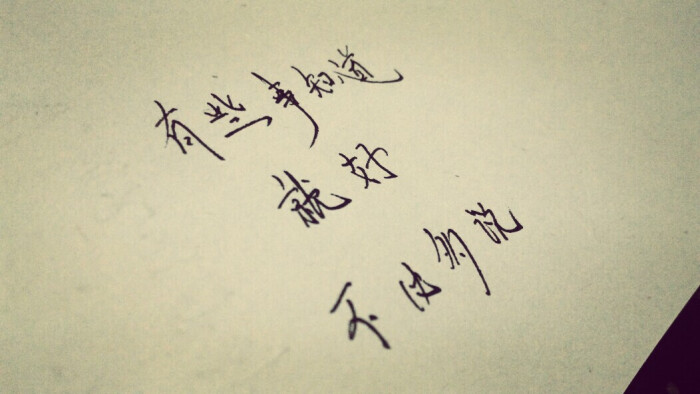 有些事知道
就好
不必多说